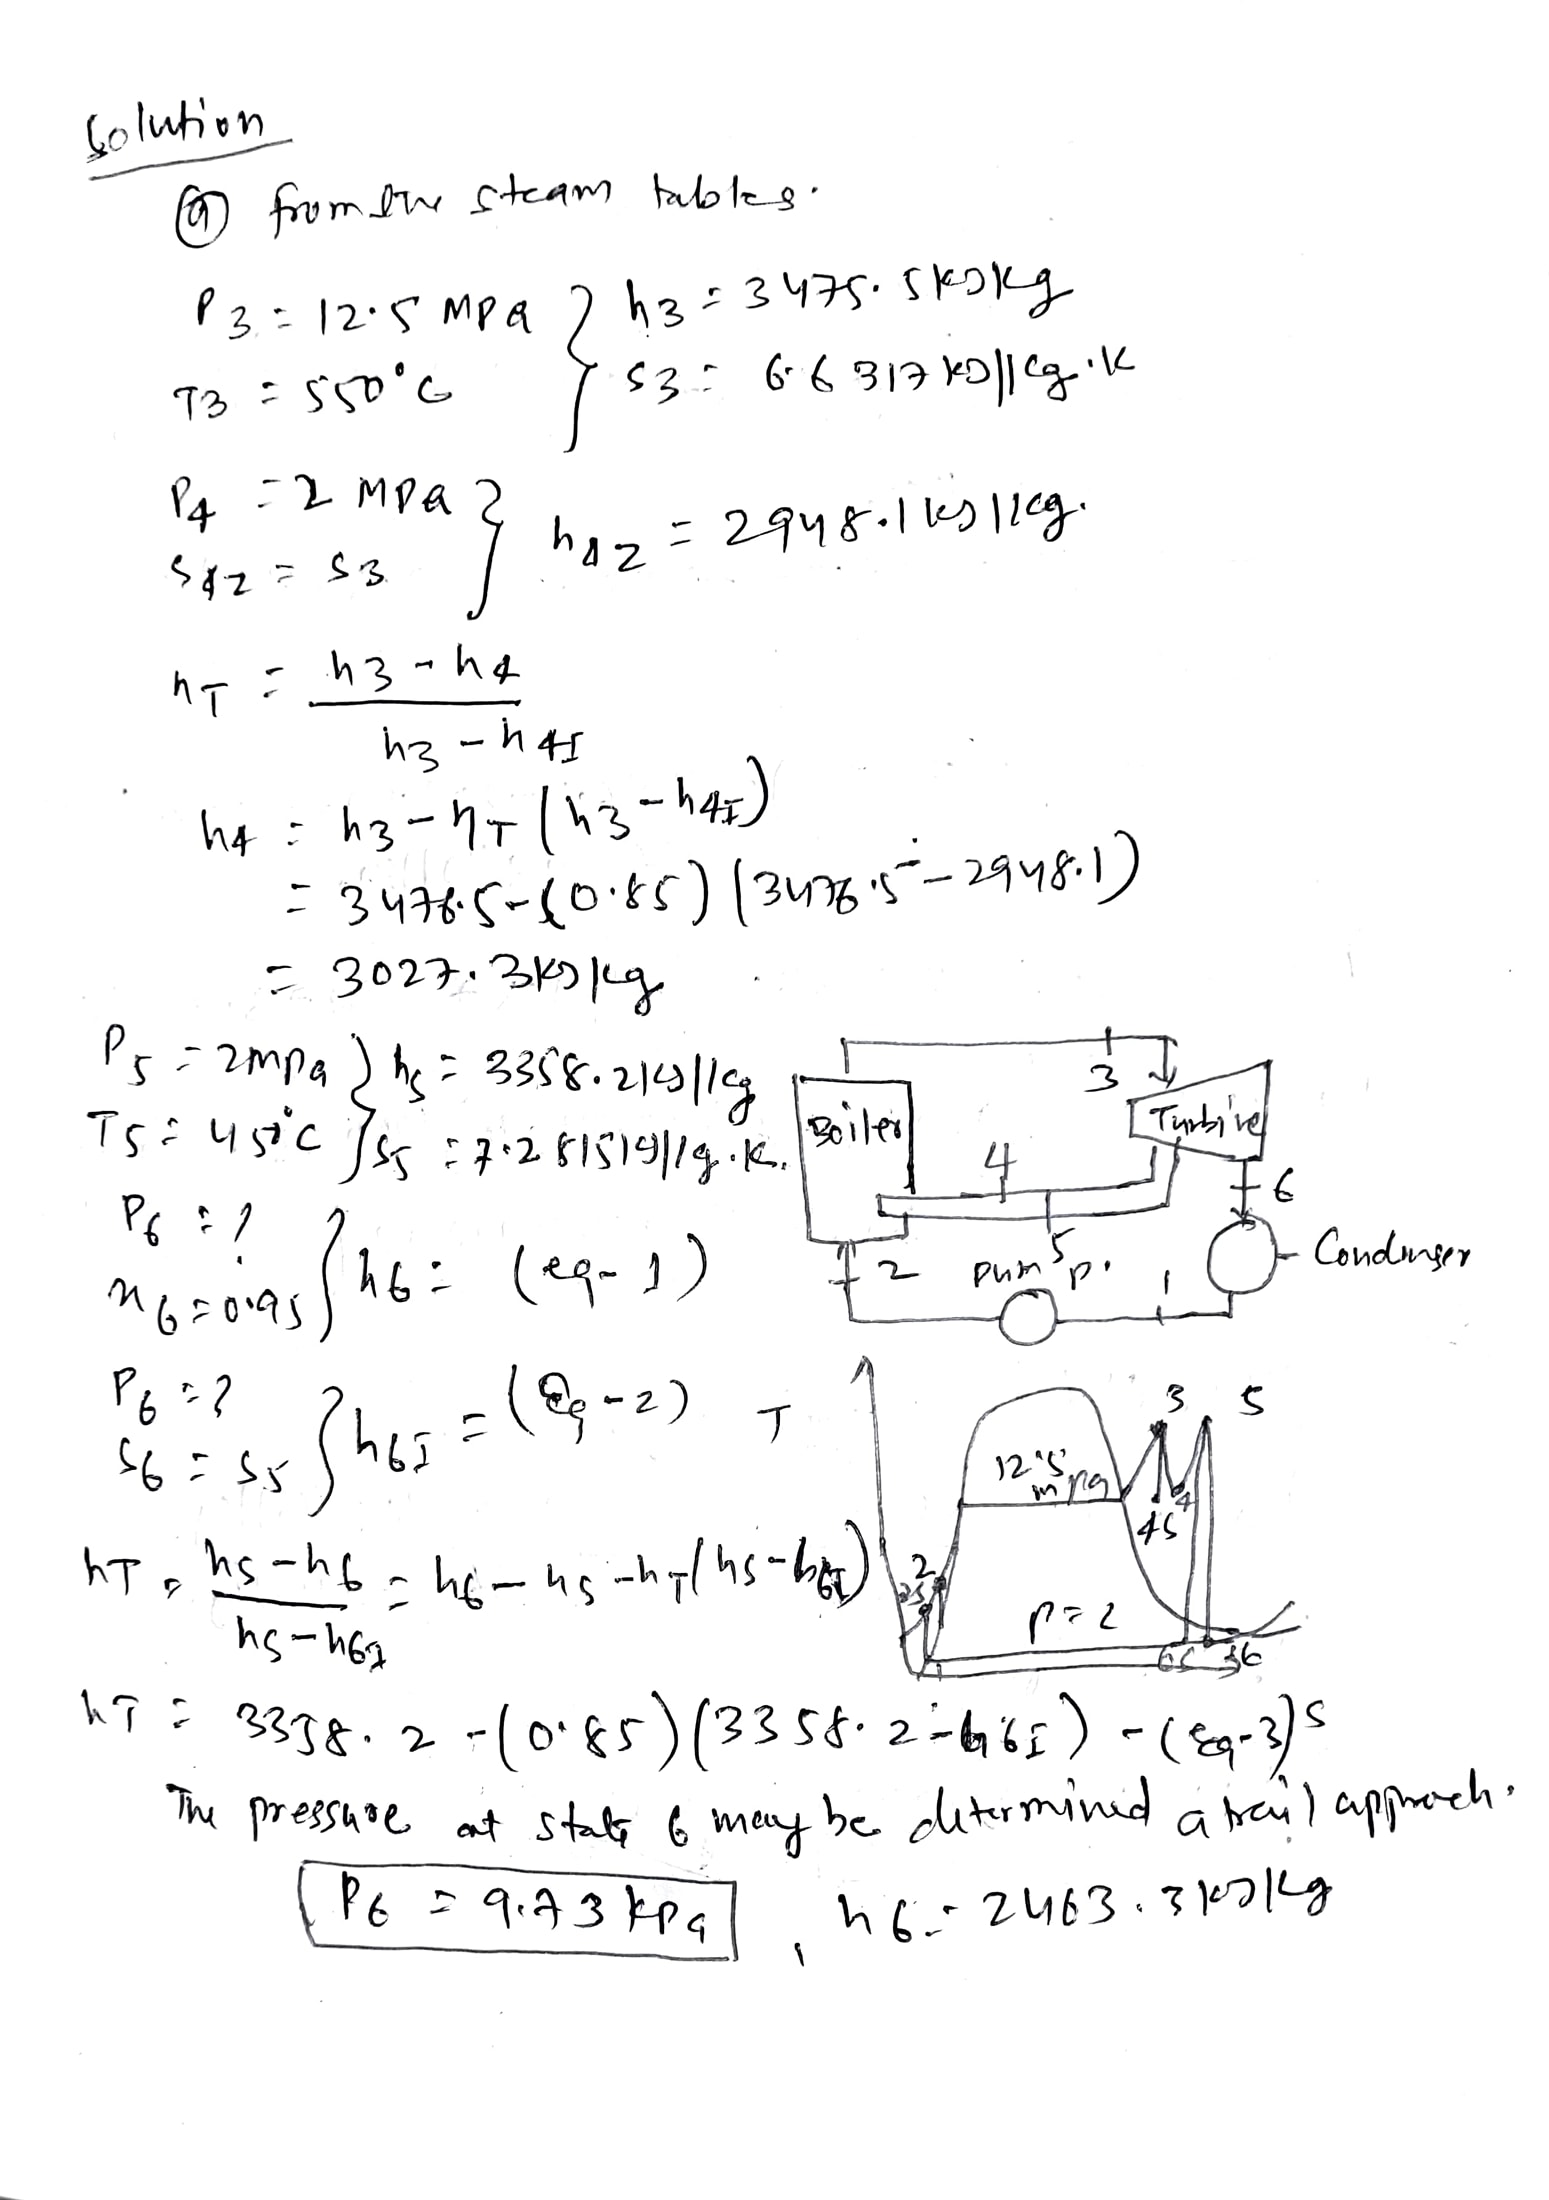 Solution
(a) from the steam tables.
P3 = 12.5 MPa } h3 = 3475.5 kJ/kg
T3 = 550°C } s3 = 6.6317 kJ/kg.K
P4 = 2 MPa } h4z = 2948.1 kJ/kg.
s4z = s3
ηT = h3 - h4
h3 - h4I
h4 = h3 - ηT (h3 - h4I)
= 3476.5 - (0.85) (3476.5 - 2948.1)
= 3027.3 kJ/kg
P5 = 2 MPa } h5 = 3358.2 kJ/kg
T5 = 450°C } s5 = 7.2815 kJ/kg.K.
P6 = ?
x6 = 0.95 } h6 = (eq-1)
P6 = ?
s6 = s5 } h6I = (Eq-2)
hT = h5 - h6 = h6 - h5 - hT (h5 - h6I)
h5 - h6I
hT = 3338.2 - (0.85) (3358.2 - h6I) - (Eq-3)s
The pressure at state 6 may be determined a trail approach.
P6 = 9.73 kPa , h6 = 2463.3 kJ/kg
3
Boiler
Turbine
4
6
5
Condenser
2
pump.
1
T
3
5
12.5
mpa
4
4s
2
2s
P=2
1
6s
6